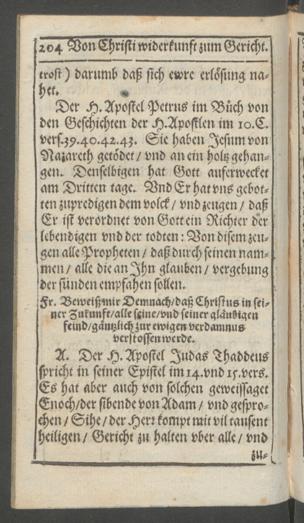 204 Von Christi widerkunft zum Gericht.
trost) darumb daß sich ewre erlösung na-
het.
Der H. Apostel Petrus im Büch von
den Geschichten der H. Apostlen im 10. C.
vers. 39. 40. 42. 43. Sie haben Jesum von
Nazareth getödet / vnd an ein holtz gehan-
gen. Denselbigen hat Gott auferwecket
am Dritten tage. Vnd Er hat vns gebot-
ten zupredigen dem volck / vnd zeugen / daß
Er ist verordnet von Gott ein Richter der
lebendigen vnd der todten: Von disem zeu-
gen alle Propheten / daß durch seinen nam-
men / alle die an Jhn glauben / vergebung
der sünden empfahen sollen.
Fr. Beweiß mir Demnach / daß Christus in sei-
ner Zukunft / alle seine / vnd seiner gläubigen
feind / gäntzlich zur ewigen verdamnus
verstossen werde.
A. Der H. Apostel Judas Thaddeus
spricht in seiner Epistel im 14. vnd 15. vers.
Es hat aber auch von solchen geweissaget
Enoch / der sibende von Adam / vnd gespro-
chen / Sihe / der Herr kompt mit vil tausent
heiligen / Gericht zu halten vber alle / vnd
zu-